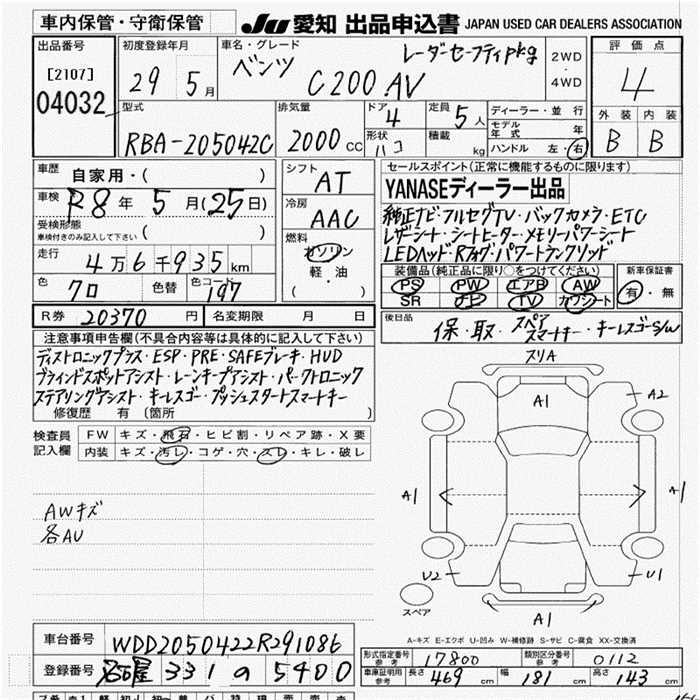 車内保管・守衛保管 JU 愛知 出品申込書 JAPAN USED CAR DEALERS ASSOCIATION
出品番号 初度登録年月 車名・グレード 評価点
[2107] 29 5月 ベンツ C200 AV レーダーセーフティpkg 2WD・4WD 4
04032
型式 排気量 ドア 4 定員 5人 ディーラー・並行 外装 内装
RBA-205042C 2000cc 形状 ハコ 積載 kg モデル年式 年 B B
ハンドル 左・右
車歴 自家用・( ) シフト AT セールスポイント(正常に機能するものに限ります)
車検 R8年 5月(25日) 冷房 AAC YANASEディーラー出品
受検形態 ( )
車検付きのみ記入して下さい
純正ナビ・フルセグTV・バックカメラ・ETC
レザーシート・シートヒーター・メモリーパワーシート
LEDヘッド・Rフォグ・パワートランクリッド
走行 4万6千935km 燃料 ガソリン 軽・油 ( )
色 クロ 色替 色コード 197
装備品(純正品に限り○をつけてください) 新車保証書
PS PW エアB AW 有・無
SR ナビ TV カワシート
R券 20370円 名変期限 月 日
後日品 保・取・スペアスマートキー・キーレスゴーS/W
注意事項申告欄(不具合箇所等は具体的に記入して下さい)
ディストロニックプラス・ESP・PRE・SAFEブレーキ・HUD
ブラインドスポットアシスト・レーンキープアシスト・パークトロニック
ステアリングアシスト・キーレスゴー・プッシュスタートスマートキー
修復歴 有(箇所 )
検査員記入欄 FW キズ・飛石・ヒビ割・リペア跡・X要
内装 キズ・汚レ・コゲ・穴・スレ・キレ・破レ
AWキズ
各AU
スリA
A1 A2
A1 A1
U2 U1
スペア A1
A-キズ E-エクボ U-凹み W-補修跡 S-サビ C-腐食 XX-交換済
車台番号 WDD2050422R291086
登録番号 名古屋 331 る 5400
形式指定番号 参考 17800 類別区分番号 参考 0112
車庫証明用 参考 長さ 469cm 幅 181cm 高さ 143cm